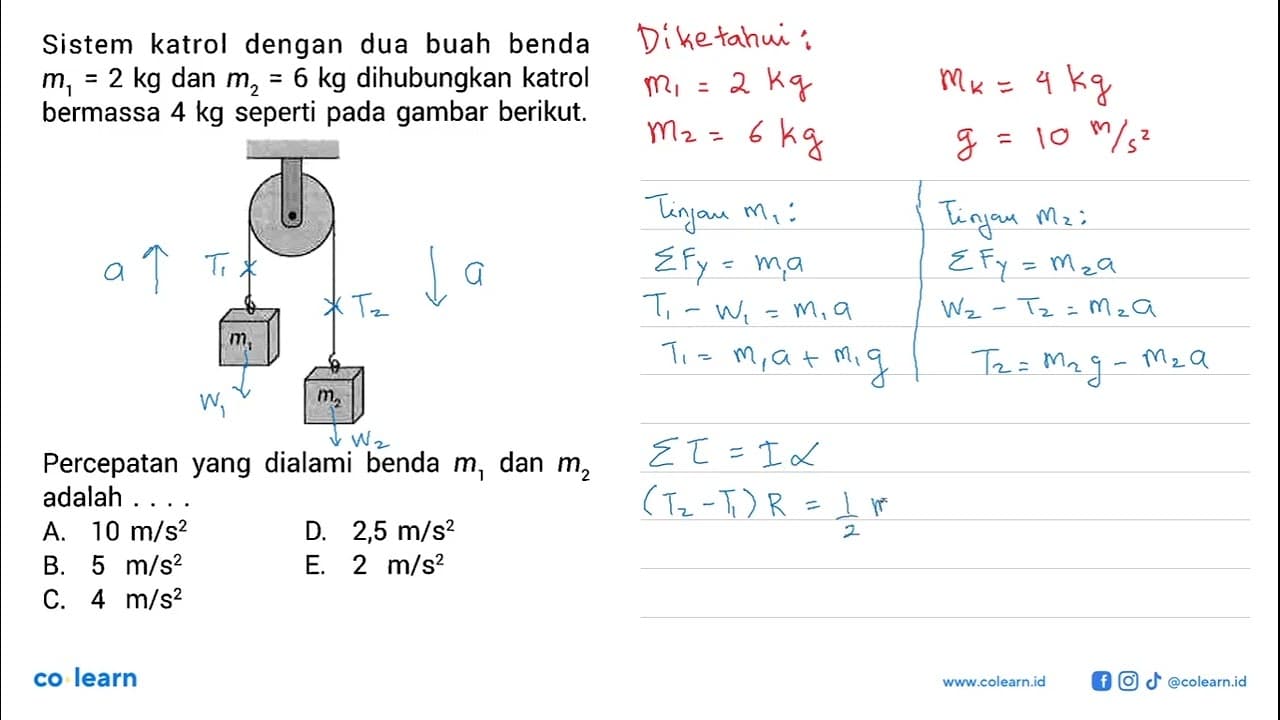 Sistem katrol dengan dua buah benda
m₁ = 2 kg dan m₂ = 6 kg dihubungkan katrol
bermassa 4 kg seperti pada gambar berikut.
a T₁ a
T₂
m₁
W₁
m₂
W₂
Percepatan yang dialami benda m₁ dan m₂
adalah . . . .
A. 10 m/s² D. 2,5 m/s²
B. 5 m/s² E. 2 m/s²
C. 4 m/s²
Diketahui :
m₁ = 2 kg mₖ = 4 kg
m₂ = 6 kg g = 10 m/s²
Tinjau m₁ :
ΣFy = m₁a
T₁ - W₁ = m₁a
T₁ = m₁a + m₁g
Tinjau m₂ :
ΣFy = m₂a
W₂ - T₂ = m₂a
T₂ = m₂g - m₂a
Στ = Iα
(T₂ - T₁) R = 1/2
co learn
www.colearn.id @colearn.id